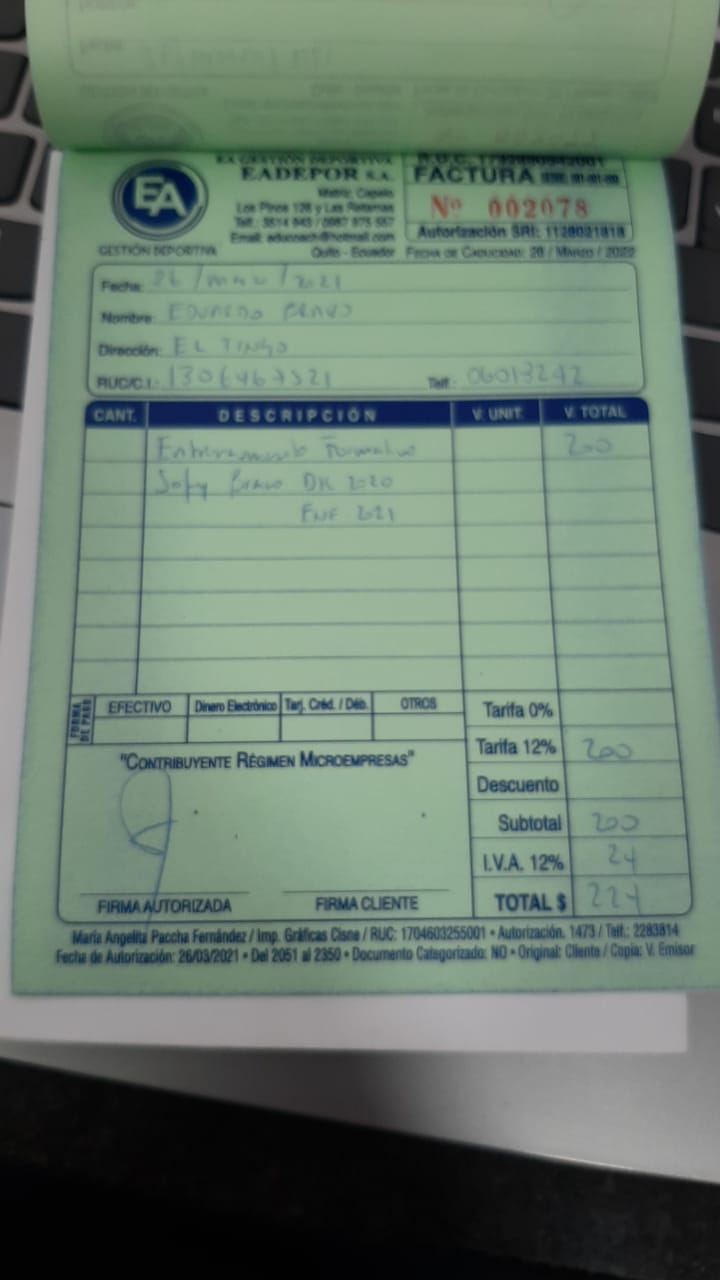 EA GESTIÓN DEPORTIVA
EADEPOR S.A.
Matriz: Capelo
Los Pinos 126 y Las Retamas
Quito - Ecuador
EA
GESTIÓN DEPORTIVA
R.U.C.
FACTURA
Nº 002078
Autorización SRI: 1128021818
FECHA DE CADUCIDAD: 26 / MARZO / 2022
Fecha: 26 / / 2021
Nombre: EDUARDO BRAVO
Dirección: EL TINGO
RUC/C.I.: 1306467321 Telf.: 06013242
CANT. DESCRIPCIÓN V. UNIT. V. TOTAL
Entrenamiento Formativo 200
Sofy Bravo DIC 2020
ENE 2021
FORMA DE PAGO
EFECTIVO Dinero Electrónico Tarj. Créd. / Déb. OTROS
Tarifa 0%
Tarifa 12% 200
Descuento
Subtotal 200
I.V.A. 12% 24
TOTAL $ 224
"CONTRIBUYENTE RÉGIMEN MICROEMPRESAS"
FIRMA AUTORIZADA FIRMA CLIENTE
María Angelita Paccha Fernández / Imp. Gráficas Cisne / RUC: 1704603255001 • Autorización. 1473 / Telf.: 2283814
Fecha de Autorización: 26/03/2021 • Del 2051 al 2350 • Documento Categorizado: NO • Original: Cliente / Copia: V. Emisor